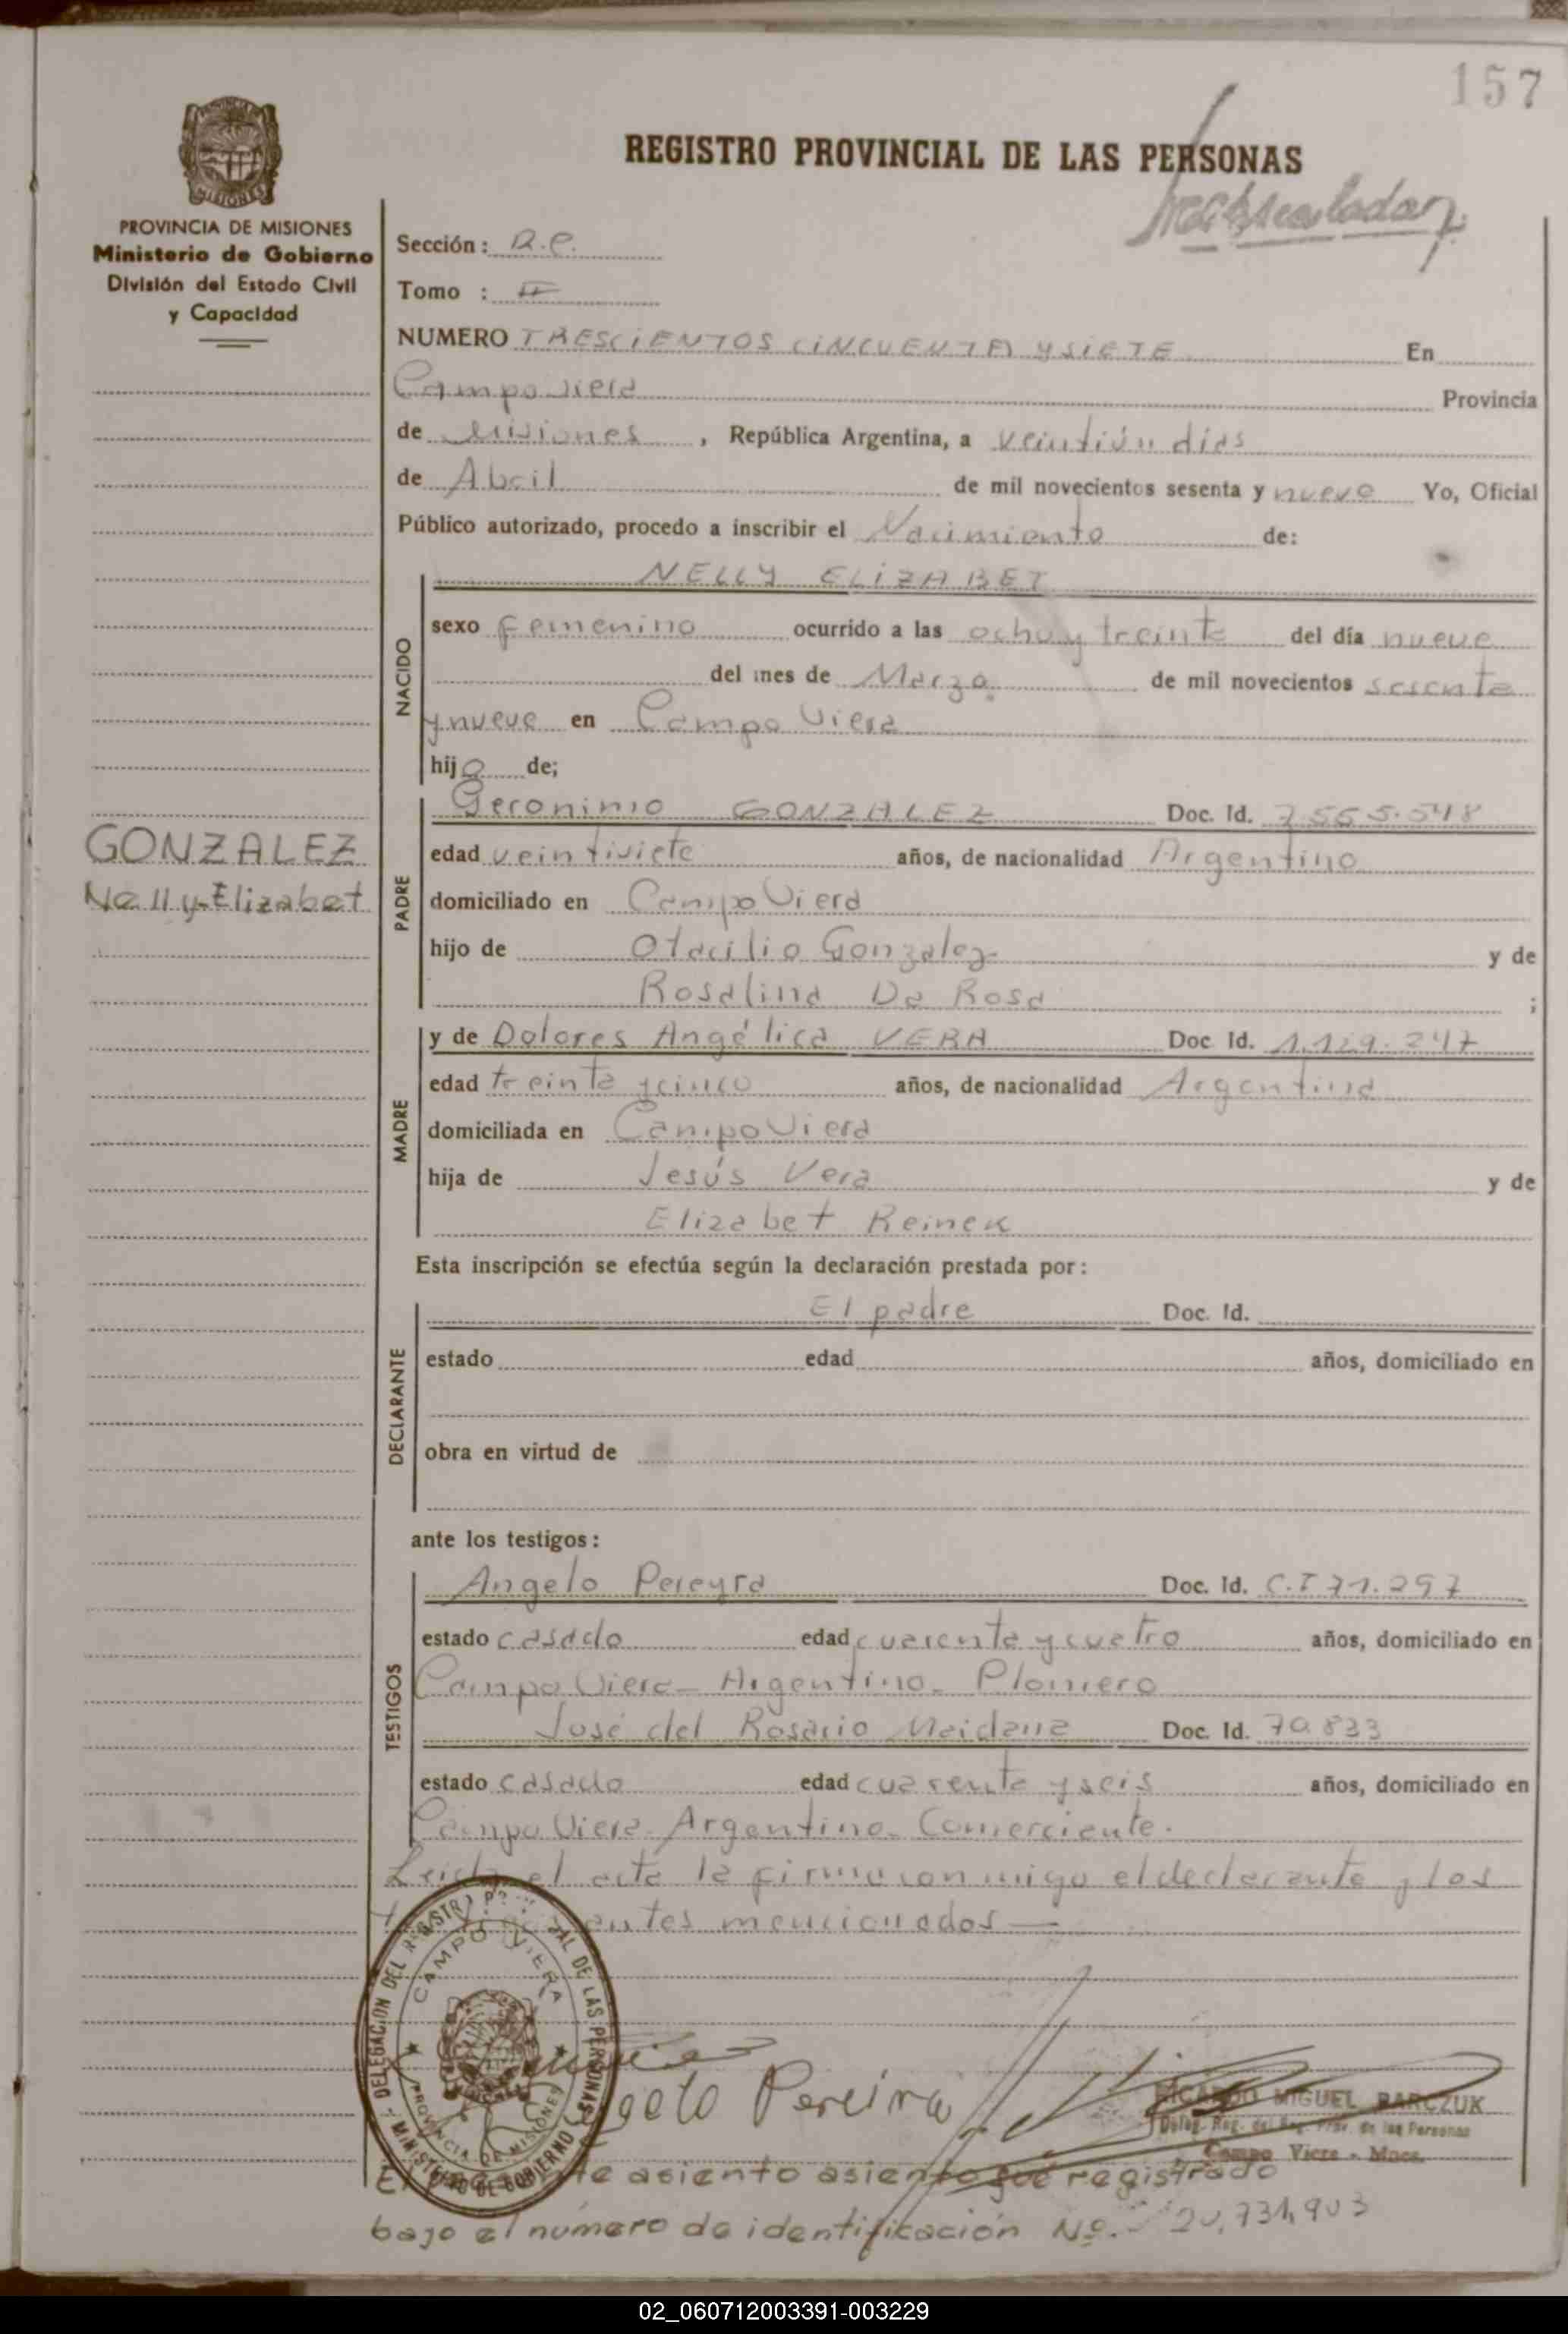 157
REGISTRO PROVINCIAL DE LAS PERSONAS
PROVINCIA DE MISIONES
Ministerio de Gobierno
División del Estado Civil
y Capacidad
Sección:
Tomo : II
NUMERO TRESCIENTOS CINCUENTA Y SIETE En
Campo Viera Provincia
de Misiones , República Argentina, a veintiún dias
de Abril de mil novecientos sesenta y nueve Yo, Oficial
Público autorizado, procedo a inscribir el Nacimiento de:
NELLY ELIZABET
NACIDO
sexo femenino ocurrido a las ocho y treinta del día nueve
del mes de Marzo de mil novecientos sesenta
y nueve en Campo Viera
hija de;
Geronimo GONZALEZ Doc. Id. 7.565.548
GONZALEZ
Nelly-Elizabet
PADRE
edad veintisiete años, de nacionalidad Argentino
domiciliado en Campo Viera
hijo de Otacilio Gonzalez y de
Rosalina Da Rosa ;
MADRE
y de Dolores Angélica VERA Doc Id. 1.129.247
edad treinta y cinco años, de nacionalidad Argentina
domiciliada en Campo Viera
hija de Jesús Vera y de
Elizabet Reinek
Esta inscripción se efectúa según la declaración prestada por:
DECLARANTE
El padre Doc. Id.
estado edad años, domiciliado en
obra en virtud de
ante los testigos:
TESTIGOS
Angelo Pereyra Doc. Id. C.I 71.297
estado casado edad cuarenta y cuatro años, domiciliado en
Campo Viera - Argentino - Plomero
José del Rosario Maidana Doc. Id. 70.833
estado casado edad cuarenta y seis años, domiciliado en
Campo Viera - Argentino - Comerciante.
Leida el acta la firma conmigo el declarante y los
mencionados —
DELEGACION DEL REGISTRO PROVINCIAL DE LAS PERSONAS
CAMPO VIERA
PROVINCIA DE MISIONES
MINISTERIO DE GOBIERNO
Angelo Pereira
RICARDO MIGUEL BARCZUK
Deleg. Reg. del Reg. Prov. de las Personas
Campo Viera - Mnes.
El presente asiento asiento fué registrado
bajo el número de identificación Nº. 20,731,903
02_060712003391-003229